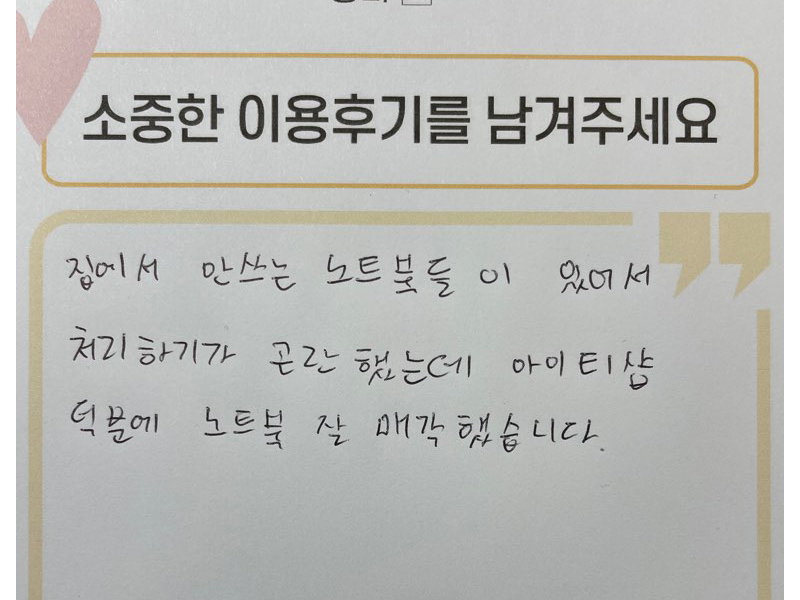 소중한 이용후기를 남겨주세요
집에서 안쓰는 노트북들이 있어서
처리하기가 곤란했는데 아이티샵
덕분에 노트북 잘 매각했습니다.